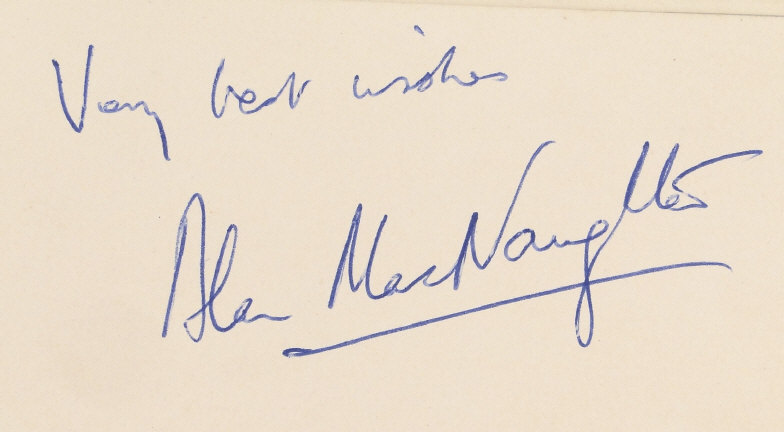 Very best wishes
Alan MacNaughtan